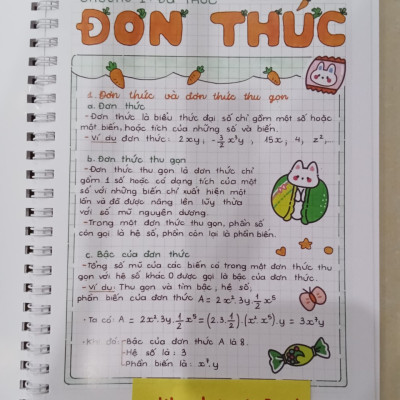 ĐƠN THỨC
1. Đơn thức và đơn thức thu gọn
a. Đơn thức
- Đơn thức là biểu thức đại số chỉ gồm một số hoặc
một biến, hoặc tích của những số và biến.
- Ví dụ đơn thức: 2xy, -3/2 x³y, 15x, 4, z²,...
b. Đơn thức thu gọn
- Đơn thức thu gọn là đơn thức chỉ
gồm 1 số hoặc có dạng tích của một
số với những biến chỉ xuất hiện một
lần và đã được nâng lên lũy thừa
với số mũ nguyên dương.
- Trong một đơn thức thu gọn, phần số
còn gọi là hệ số, phần còn lại là phần biến.
c. Bậc của đơn thức
- Tổng số mũ của các biến có trong một đơn thức thu
gọn với hệ số khác 0 được gọi là bậc của đơn thức.
- Ví dụ: Thu gọn và tìm bậc, hệ số,
phần biến của đơn thức A = 2x².3y.1/2 x⁵
- Ta có: A = 2x².3y.1/2 x⁵ = (2.3.1/2).(x².x⁵).y = 3x⁷y
- Khi đó: - Bậc của đơn thức A là 8.
- Hệ số là: 3
- Phần biến là: x⁷.y